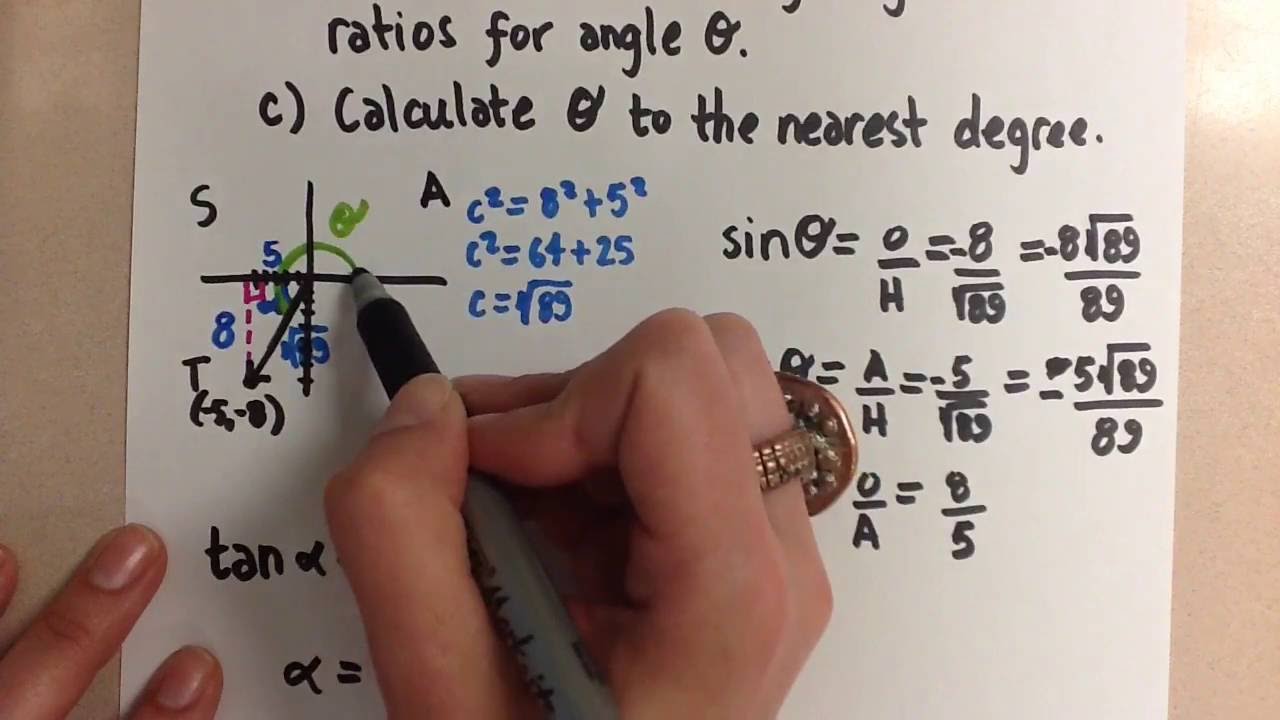 ratios for angle θ.
c) Calculate θ to the nearest degree.
S
A
θ
5
8
√89
T
(-5,-8)
c² = 8² + 5²
c² = 64 + 25
c = √89
sin θ = O/H = -8/√89 = -8√89/89
= A/H = -5/√89 = -5√89/89
O/A = 8/5
tan α
α =